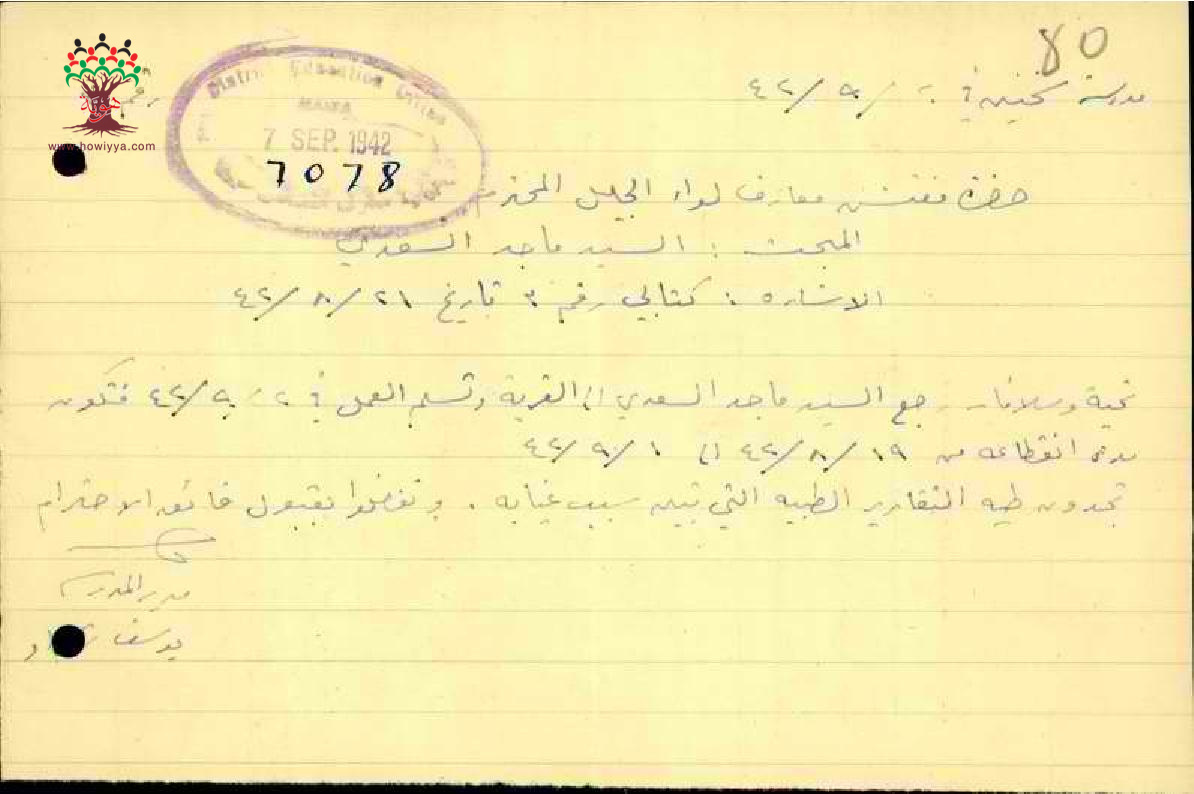 80
مدرسة سخنين في ٢ / ٩ / ٤٢
رقم
www.howiyya.com
District Education Office
HAIFA
7 SEP. 1942
7078
حضرة مفتش معارف لواء الجليل المحترم
المبحث : السيد ماجد السعدي
الاشاره : كتابي رقم ٣ تاريخ ٢١ / ٨ / ٤٢
تحية وسلاما . رجع السيد ماجد السعدي الى القرية وتسلم العمل في ٢ / ٩ / ٤٢ فتكون
مدة انقطاعه من ١٩ / ٨ / ٤٢ الى ١ / ٩ / ٤٢
تجدون طيه التقارير الطبيه التي تبين سبب غيابه . وتفضلوا بقبول فائق الاحترام
مدير المدرسة
يوسف